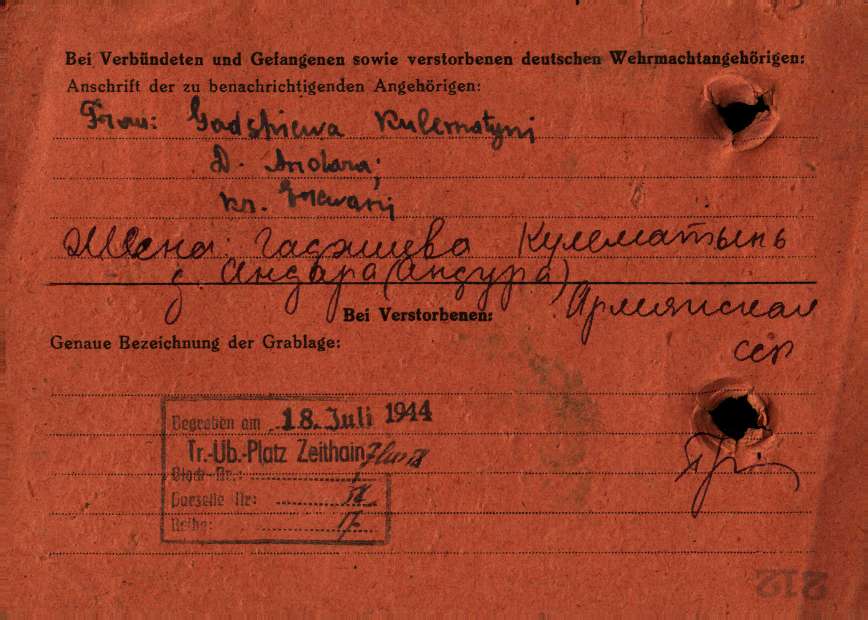 Bei Verbündeten und Gefangenen sowie verstorbenen deutschen Wehrmachtangehörigen:
Anschrift der zu benachrichtigenden Angehörigen:
Frau: Gadshiewa Kulematyni
D. Andara;
kr.
Жена: Гаджиева Кулематынь
д Андара (Андура)
Армянская
сср
Bei Verstorbenen:
Genaue Bezeichnung der Grablage:
Begraben am 18. Juli 1944
Tr.-Üb.-Platz Zeithain
Block-Nr.:
Parzelle Nr:
Reihe: 17
212